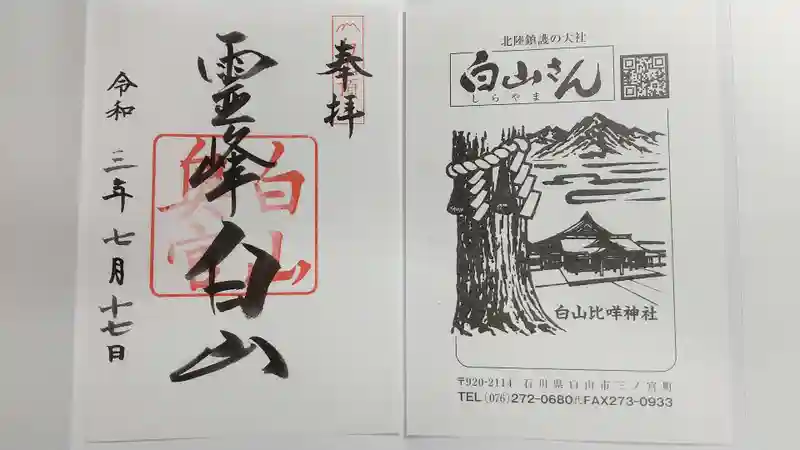 奉拝
霊峰白山
白山
奥宮
令和三年七月十七日
北陸鎮護の大社
白山さん
しらやま
白山比咩神社
〒920-2114 石川県白山市三ノ宮町
TEL(076)272-0680㈹FAX273-0933